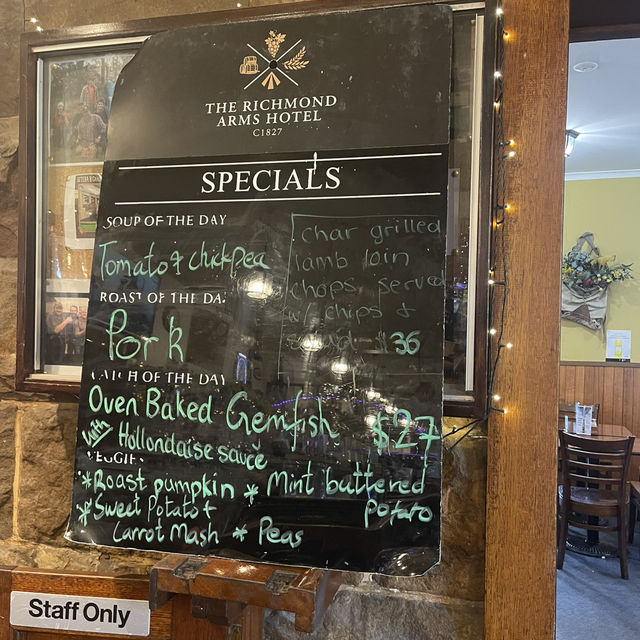 THE RICHMOND
ARMS HOTEL
C1827
SPECIALS
SOUP OF THE DAY
Tomato & chickpea
ROAST OF THE DA
Pork
CATCH OF THE DAY
Oven Baked Gemfish $27
with Hollondaise sauce
VEGGIE
*Roast pumpkin * Mint buttered
potato
*Sweet Potato +
Carrot Mash * Peas
Char grilled
lamb loin
chops, served
w/ chips &
$36
Staff Only